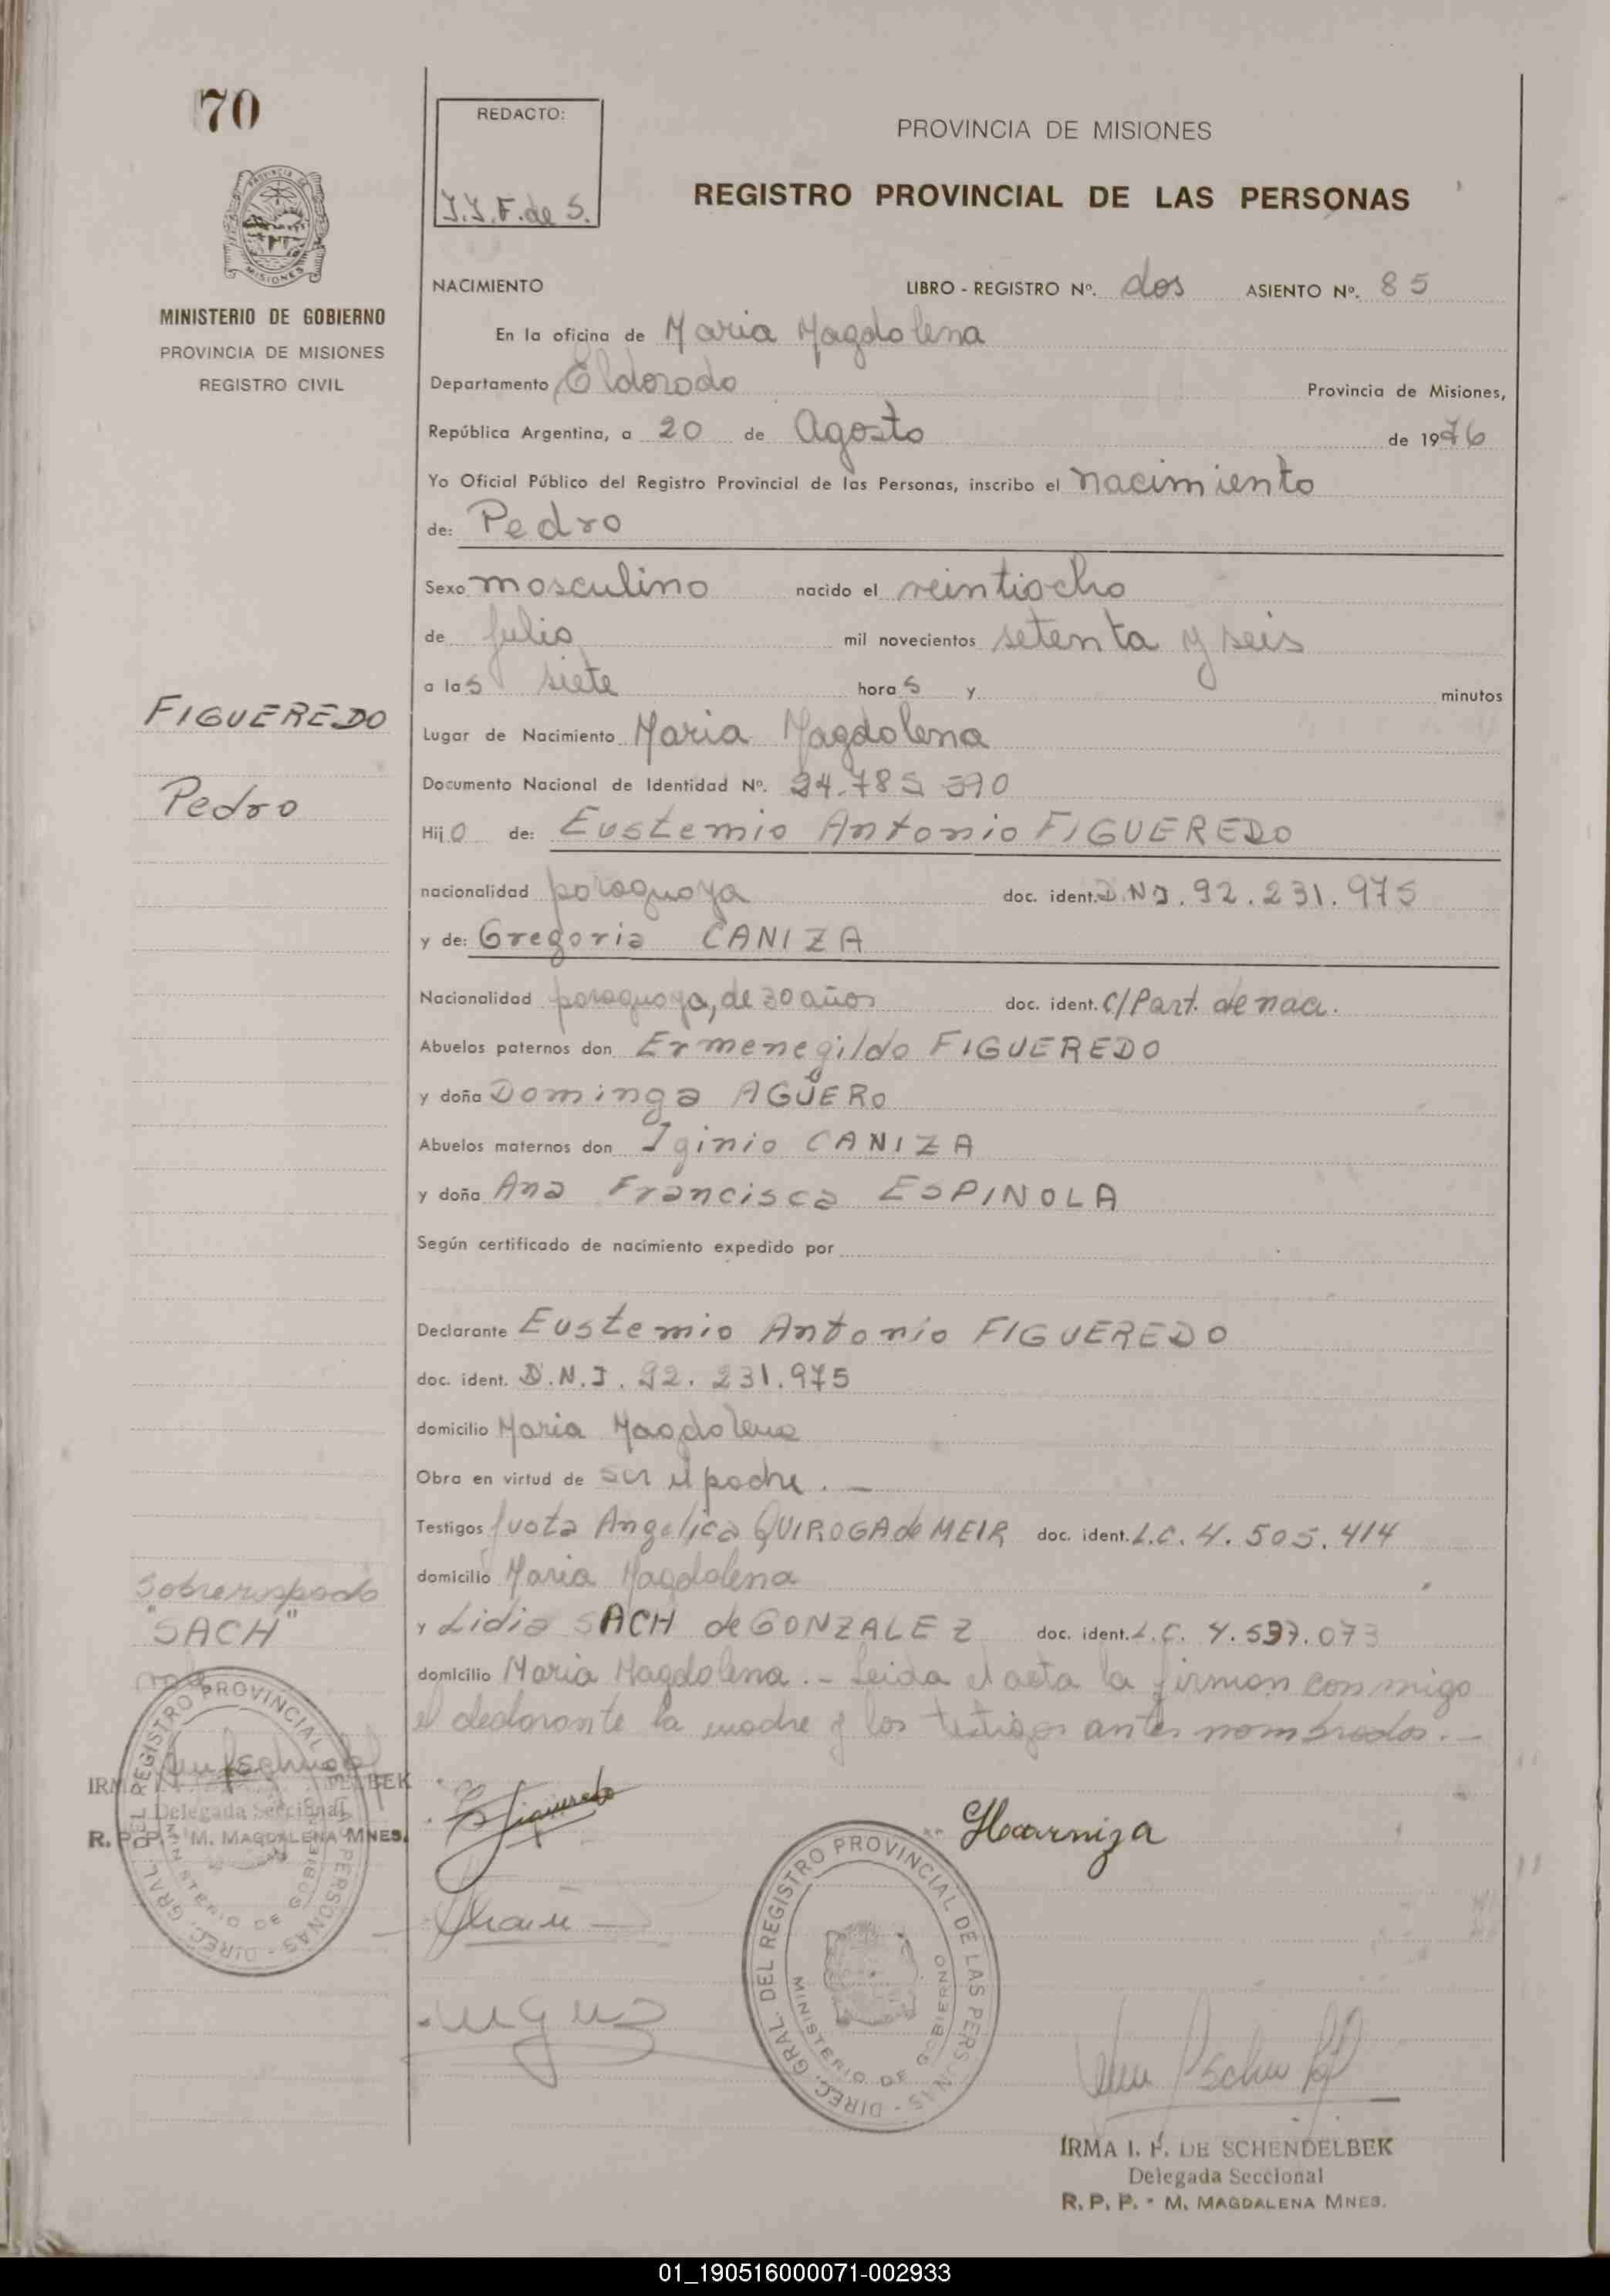 70
REDACTO:
PROVINCIA DE MISIONES
REGISTRO PROVINCIAL DE LAS PERSONAS
MINISTERIO DE GOBIERNO
PROVINCIA DE MISIONES
REGISTRO CIVIL
NACIMIENTO LIBRO - REGISTRO Nº. dos ASIENTO Nº. 85
En la oficina de Maria Magdalena
Departamento Eldorado Provincia de Misiones,
República Argentina, a 20 de Agosto de 1976
Yo Oficial Público del Registro Provincial de las Personas, inscribo el nacimiento
de: Pedro
Sexo masculino nacido el veintiocho
de Julio mil novecientos setenta y seis
a las siete horas y minutos
FIGUEREDO
Lugar de Nacimiento Maria Magdalena
Pedro
Documento Nacional de Identidad Nº. 24.785
Hijo de: Eustemio Antonio FIGUEREDO
nacionalidad paraguaya doc. ident. D.N.I. 92.231.975
y de: Gregoria CANIZA
Nacionalidad paraguaya, de 30 años doc. ident. C/Part. de naci.
Abuelos paternos don Ermenegildo FIGUEREDO
y doña Dominga AGÜERO
Abuelos maternos don Iginio CANIZA
y doña Ana Francisca ESPINOLA
Según certificado de nacimiento expedido por
Declarante Eustemio Antonio FIGUEREDO
doc. ident. D.N.I. 92.231.975
domicilio Maria Magdalena
Obra en virtud de ser el padre. —
Testigos Angelica QUIROGA de MEIR doc. ident. L.C. 4.505.414
domicilio Maria Magdalena
Sobrerraspado
"SACH"
vale
y Lidia SACH de GONZALEZ doc. ident. L.C. 4.597.073
domicilio Maria Magdalena. - Leida el acta la firman conmigo
el declarante la madre y los testigos antes nombrados. —
DIREC. GRAL. DEL REGISTRO PROVINCIAL DE LAS PERSONAS
MINISTERIO DE GOBIERNO
Delegada Seccional
R. P. P. M. MAGDALENA MNES.
Figueredo
DIREC. GRAL. DEL REGISTRO PROVINCIAL DE LAS PERSONAS
MINISTERIO DE GOBIERNO
IRMA I. F. DE SCHENDELBEK
Delegada Seccional
R. P. P. - M. MAGDALENA MNES.
01_190516000071-002933